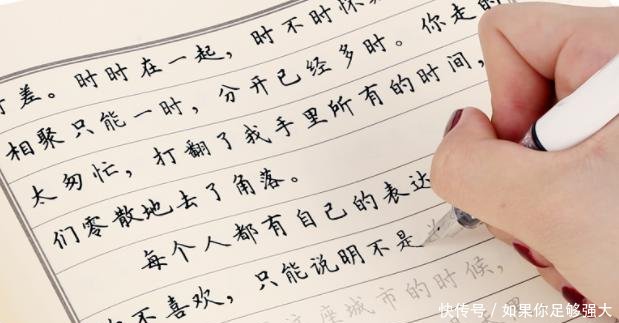 差。时时在一起，时不时怀
相聚只能一时，分开已经多时。你走的
太匆忙，打翻了我手里所有的时间，
们零散地去了角落。
每个人都有自己的表达
不喜欢，只能说明不是
这座城市的时候，
快传号／如果你足够强大